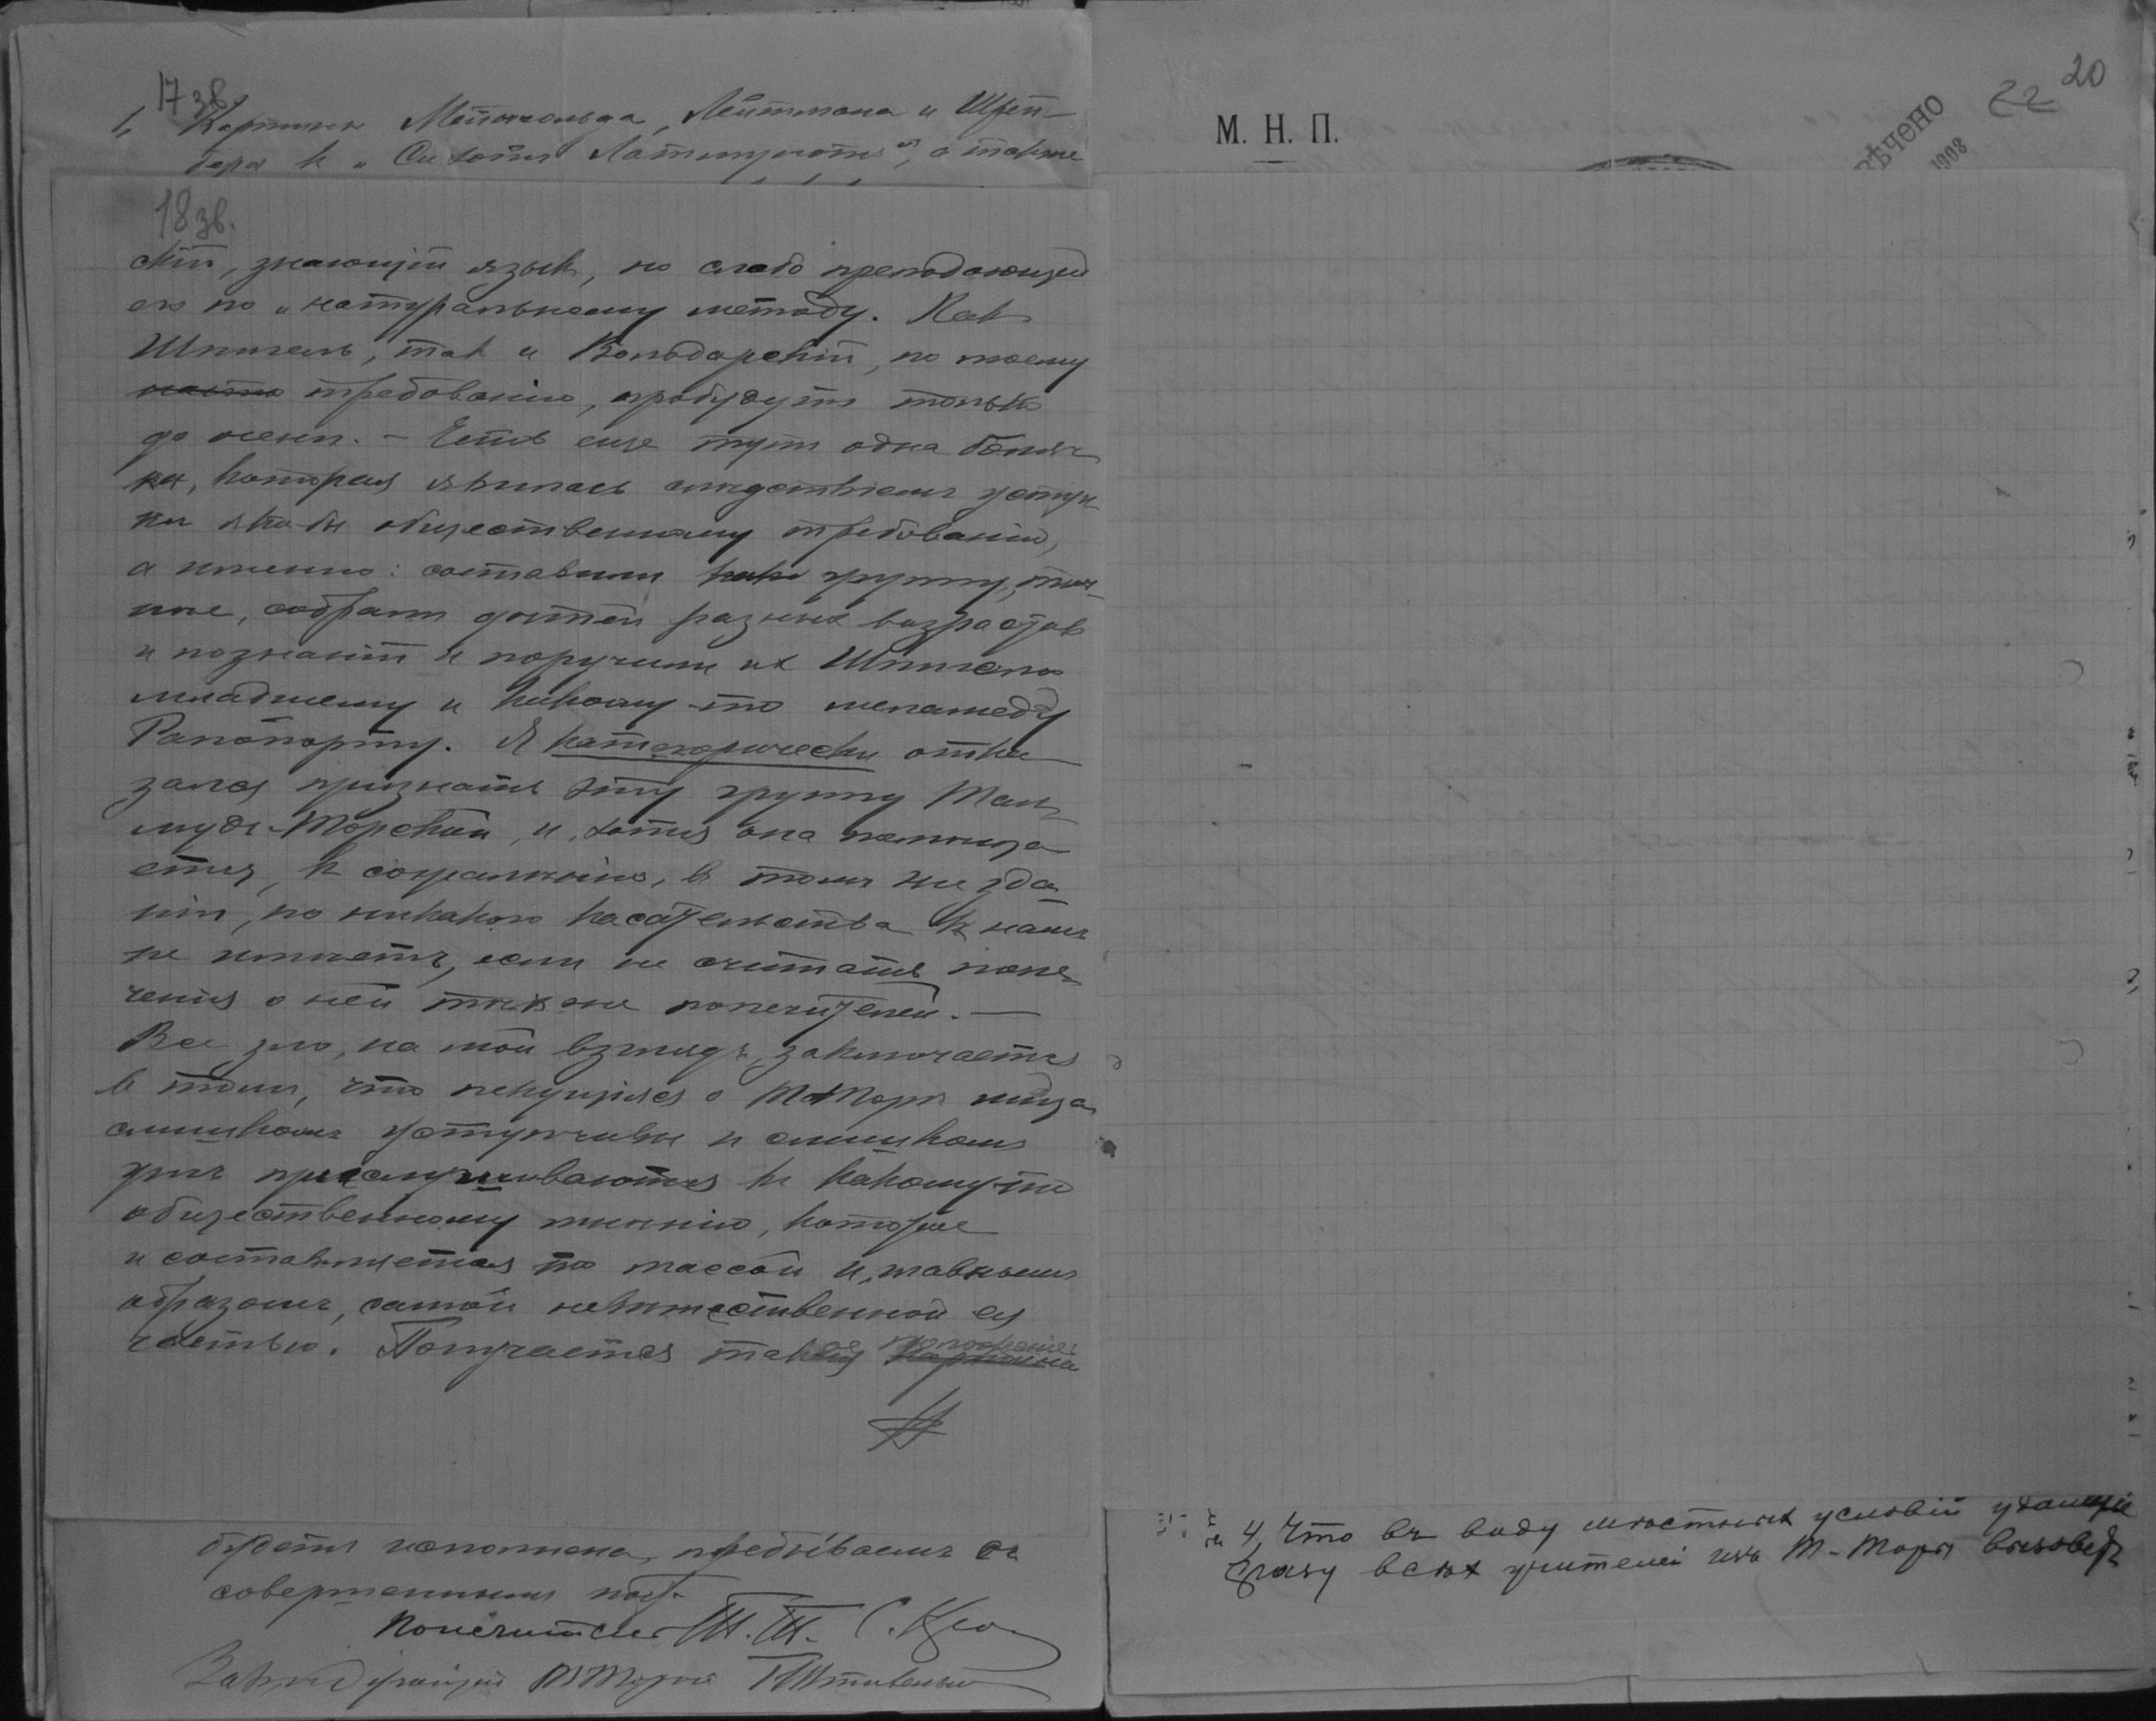 17 зв.
1, Картины Мейнгольда, Лейтмана и Шрей-
бера к "Сихойс Латинукойс", а также
18 зв.
скій, знающій языкъ, но слабо преподающій
его по "натуральному методу. Как
Шпигель, так и Володарскій, по моему
требованію, пробудутъ только
до осени. – Есть еще тутъ одна болячка
, которая явилась слѣдствіемъ уступ
ки яко-бы общественному требованію,
а именно: составили группу, точ-
нѣе, собрали дѣтей разных возрастов
и познаній и поручили их Шпигелю
младшему и какому-то меламеду
Рапопорту. Я категорически отка-
зался признать эту группу Тал-
мудъ-Торской, и, хотя она помѣща-
ется, к сожалѣнію, в томъ же зда-
ніи, но никакого касательства к намъ
не имѣетъ, если не считать попе-
ченія о ней тѣх же попечителей. —
Все зло, на мой взглядъ, заключается
в томъ, что пекущіяся о Т-Торѣ лица
слишкомъ уступчивы и слишкомъ
прислушиваются к какому-то
общественному мнѣнію, которое
и составляется то массой и, главнымъ
образомъ, самой невѣжественной ея
частью. Получается такое положеніе
картина
будетъ исполнена, пребываемъ съ
совершеннымъ почт.
Попечитель Т.Т. С.
Завѣдующій Т-Торой
М. Н. П.
22 20
ѢЧЕНО
1908
4, Что въ виду мѣстных условій удаленіе
сразу всѣх учителей изъ Т-Торы вызоветъ